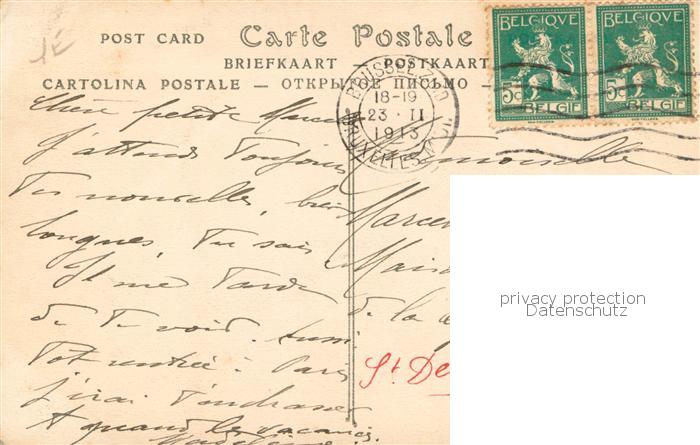 1É
POST CARD Carte Postale
BRIEFKAART — POSTKAART
CARTOLINA POSTALE — ОТКРЫТОЕ ПИСЬМО —
BELGIQVE
5c
BELGIE
BELGIQVE
5c
BELGIE
BRUSSEL
18-19
23 · II
1913
BRUXELLES
Chère petite Marcelle
J'attends toujours
tes nouvelles, bien
longues, tu sais
Il me tarde
de te voir. Aussi
tôt rentrée à Paris
j'irai t'embrasser
A quand les vacances.
Madeleine
Mademoiselle
Marcel
Mais
de la
St De
privacy protection
Datenschutz